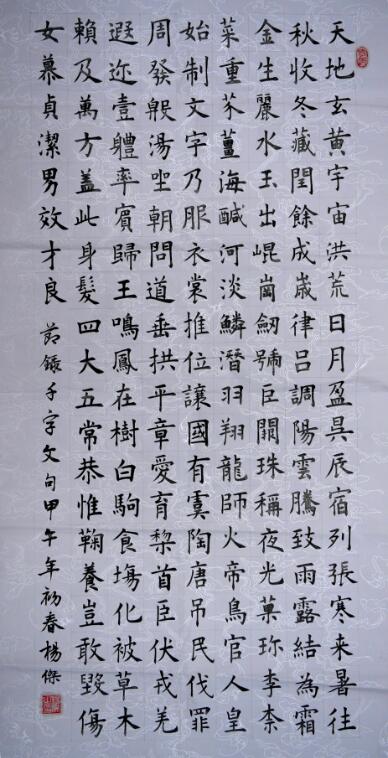 天地玄黃宇宙洪荒日月盈昃辰宿列張寒来暑往
秋收冬藏閏餘成歲律呂調陽雲騰致雨露結為霜
金生麗水玉出崐崗劒號巨闕珠稱夜光菓珎李柰
菜重芥薑海醎河淡鱗潛羽翔龍師火帝鳥官人皇
始制文字乃服衣裳推位讓國有虞陶唐吊民伐罪
周發殷湯坐朝問道垂拱平章愛育黎首臣伏戎羌
遐迩壹軆率賓歸王鳴鳳在樹白駒食塲化被草木
賴及萬方盖此身髮四大五常恭惟鞠養豈敢毀傷
女慕貞潔男效才良 節錄千字文句甲午年初春楊傑